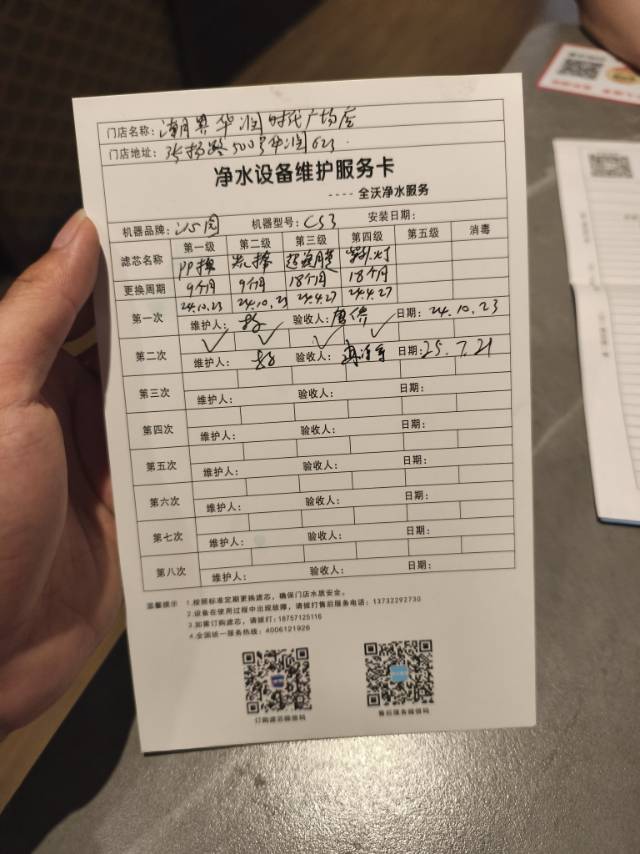 门店名称：潮界华润时代广场店
门店地址：张杨路500号华润623
净水设备维护服务卡
---- 全沃净水服务
机器品牌： 机器型号：CS3 安装日期：
滤芯名称 第一级 第二级 第三级 第四级 第五级 消毒
PP棉 炭棒 超滤膜 紫外灯
更换周期 9个月 9个月 18个月 18个月
第一次 24.10.23 24.10.23 24.4.27 24.4.27
维护人： 验收人：唐倩 日期：24.10.23
第二次 ✓ ✓ ✓ ✓
维护人： 验收人： 日期：25.7.21
第三次
维护人： 验收人： 日期：
第四次
维护人： 验收人： 日期：
第五次
维护人： 验收人： 日期：
第六次
维护人： 验收人： 日期：
第七次
维护人： 验收人： 日期：
第八次
维护人： 验收人： 日期：
温馨提示 1.按照标准定期更换滤芯，确保门店水质安全。
2.设备在使用过程中出现故障，请拨打售后服务电话：13732292730
3.如需订购滤芯，请拨打：18757125116
4.全国统一服务热线：4006121926
订购滤芯微信码 售后服务微信码